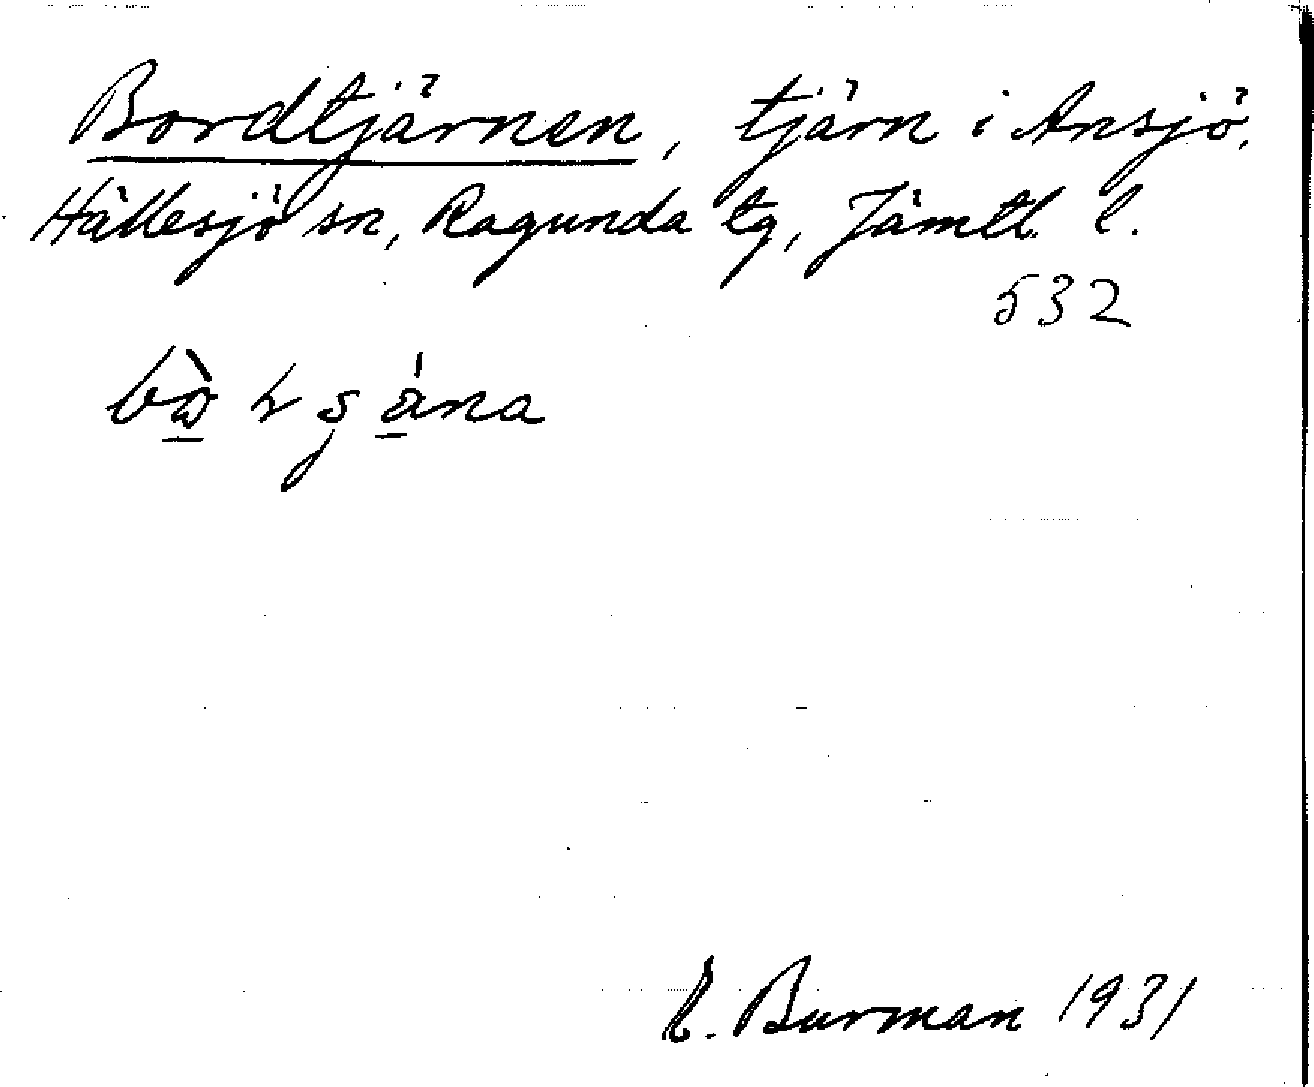 Bordtjärnen, tjärn i Ansjö,
Hällesjö sn, Ragunda tg, Jämtl. l.
532
E. Burman 1931